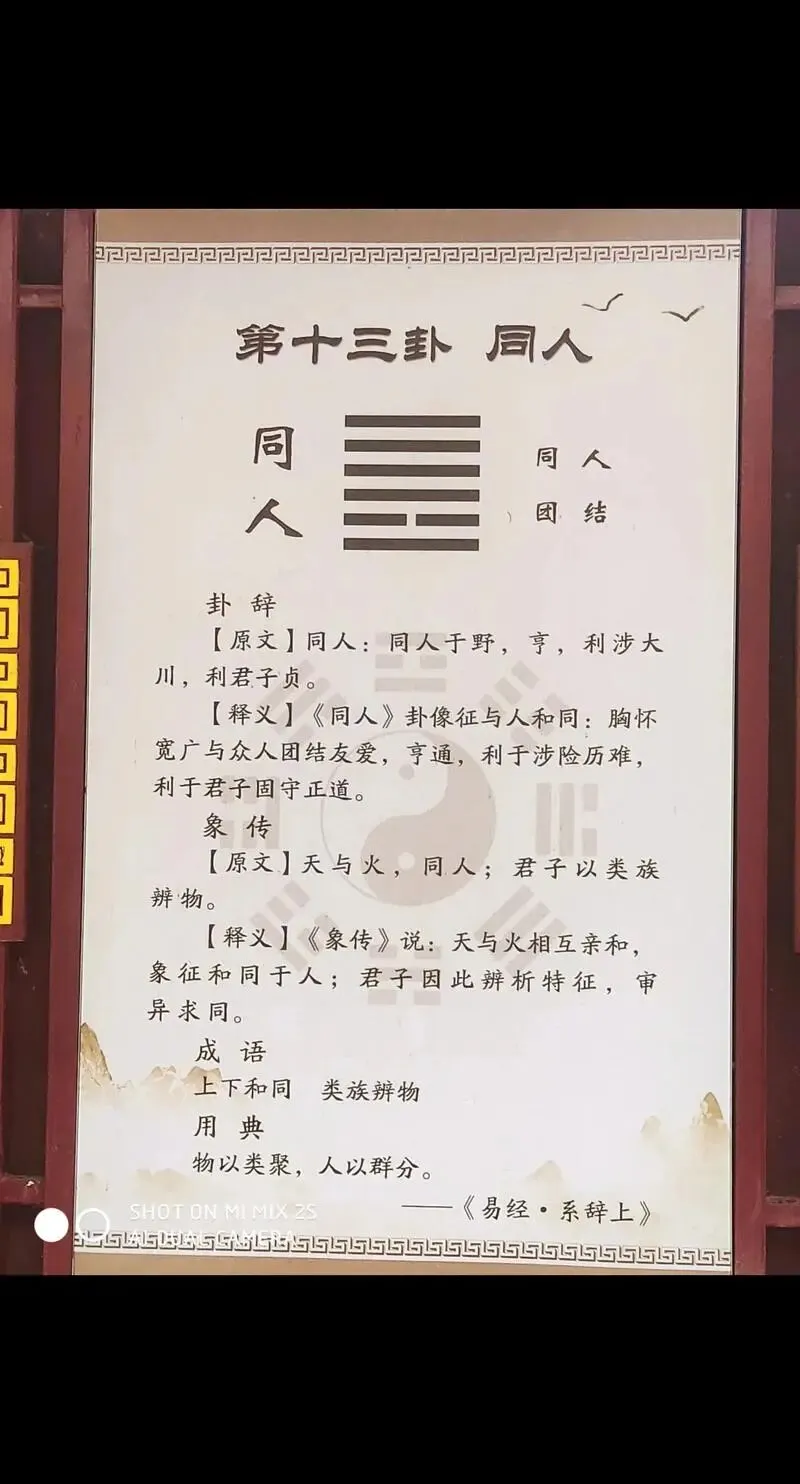 第十三卦 同人
同人
同人
团结
卦辞
【原文】同人：同人于野，亨，利涉大
川，利君子贞。
【释义】《同人》卦像征与人和同：胸怀
宽广与众人团结友爱，亨通，利于涉险历难，
利于君子固守正道。
象传
【原文】天与火，同人；君子以类族
辨物。
【释义】《象传》说：天与火相互亲和，
象征和同于人；君子因此辨析特征，审
异求同。
成语
上下和同 类族辨物
用典
物以类聚，人以群分。
——《易经·系辞上》
SHOT ON MI MIX 2S
AI DUAL CAMERA